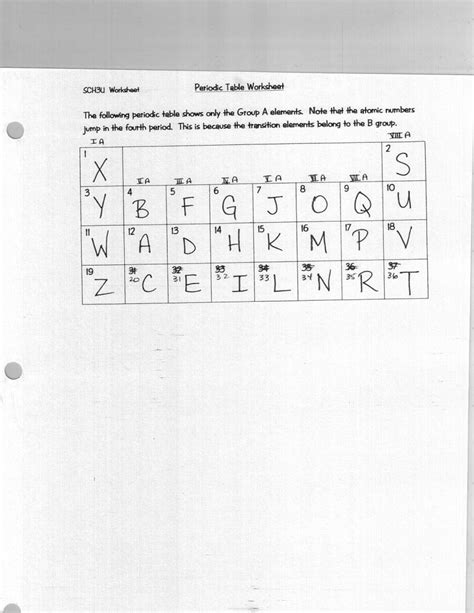 SCH3U Worksheet Periodic Table Worksheet
The following periodic table shows only the Group A elements. Note that the atomic numbers
jump in the fourth period. This is because the transition elements belong to the B group.
I A VIII A
1 2
X S
II A III A IV A V A VI A VII A
3 4 5 6 7 8 9 10
Y B F G J O Q U
11 12 13 14 15 16 17 18
W A D H K M P V
19 31 32 33 34 35 36 37
20 31 32 33 34 35 36
Z C E I L N R T